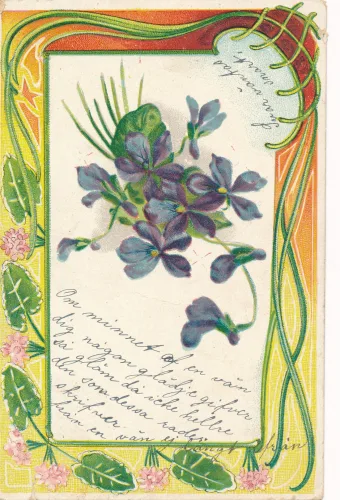 Om minnet af en vän
dig någon glädje gifver
så glöm då icke heller
den som dessa rader
skrifver
från en vän ej långt ifrån